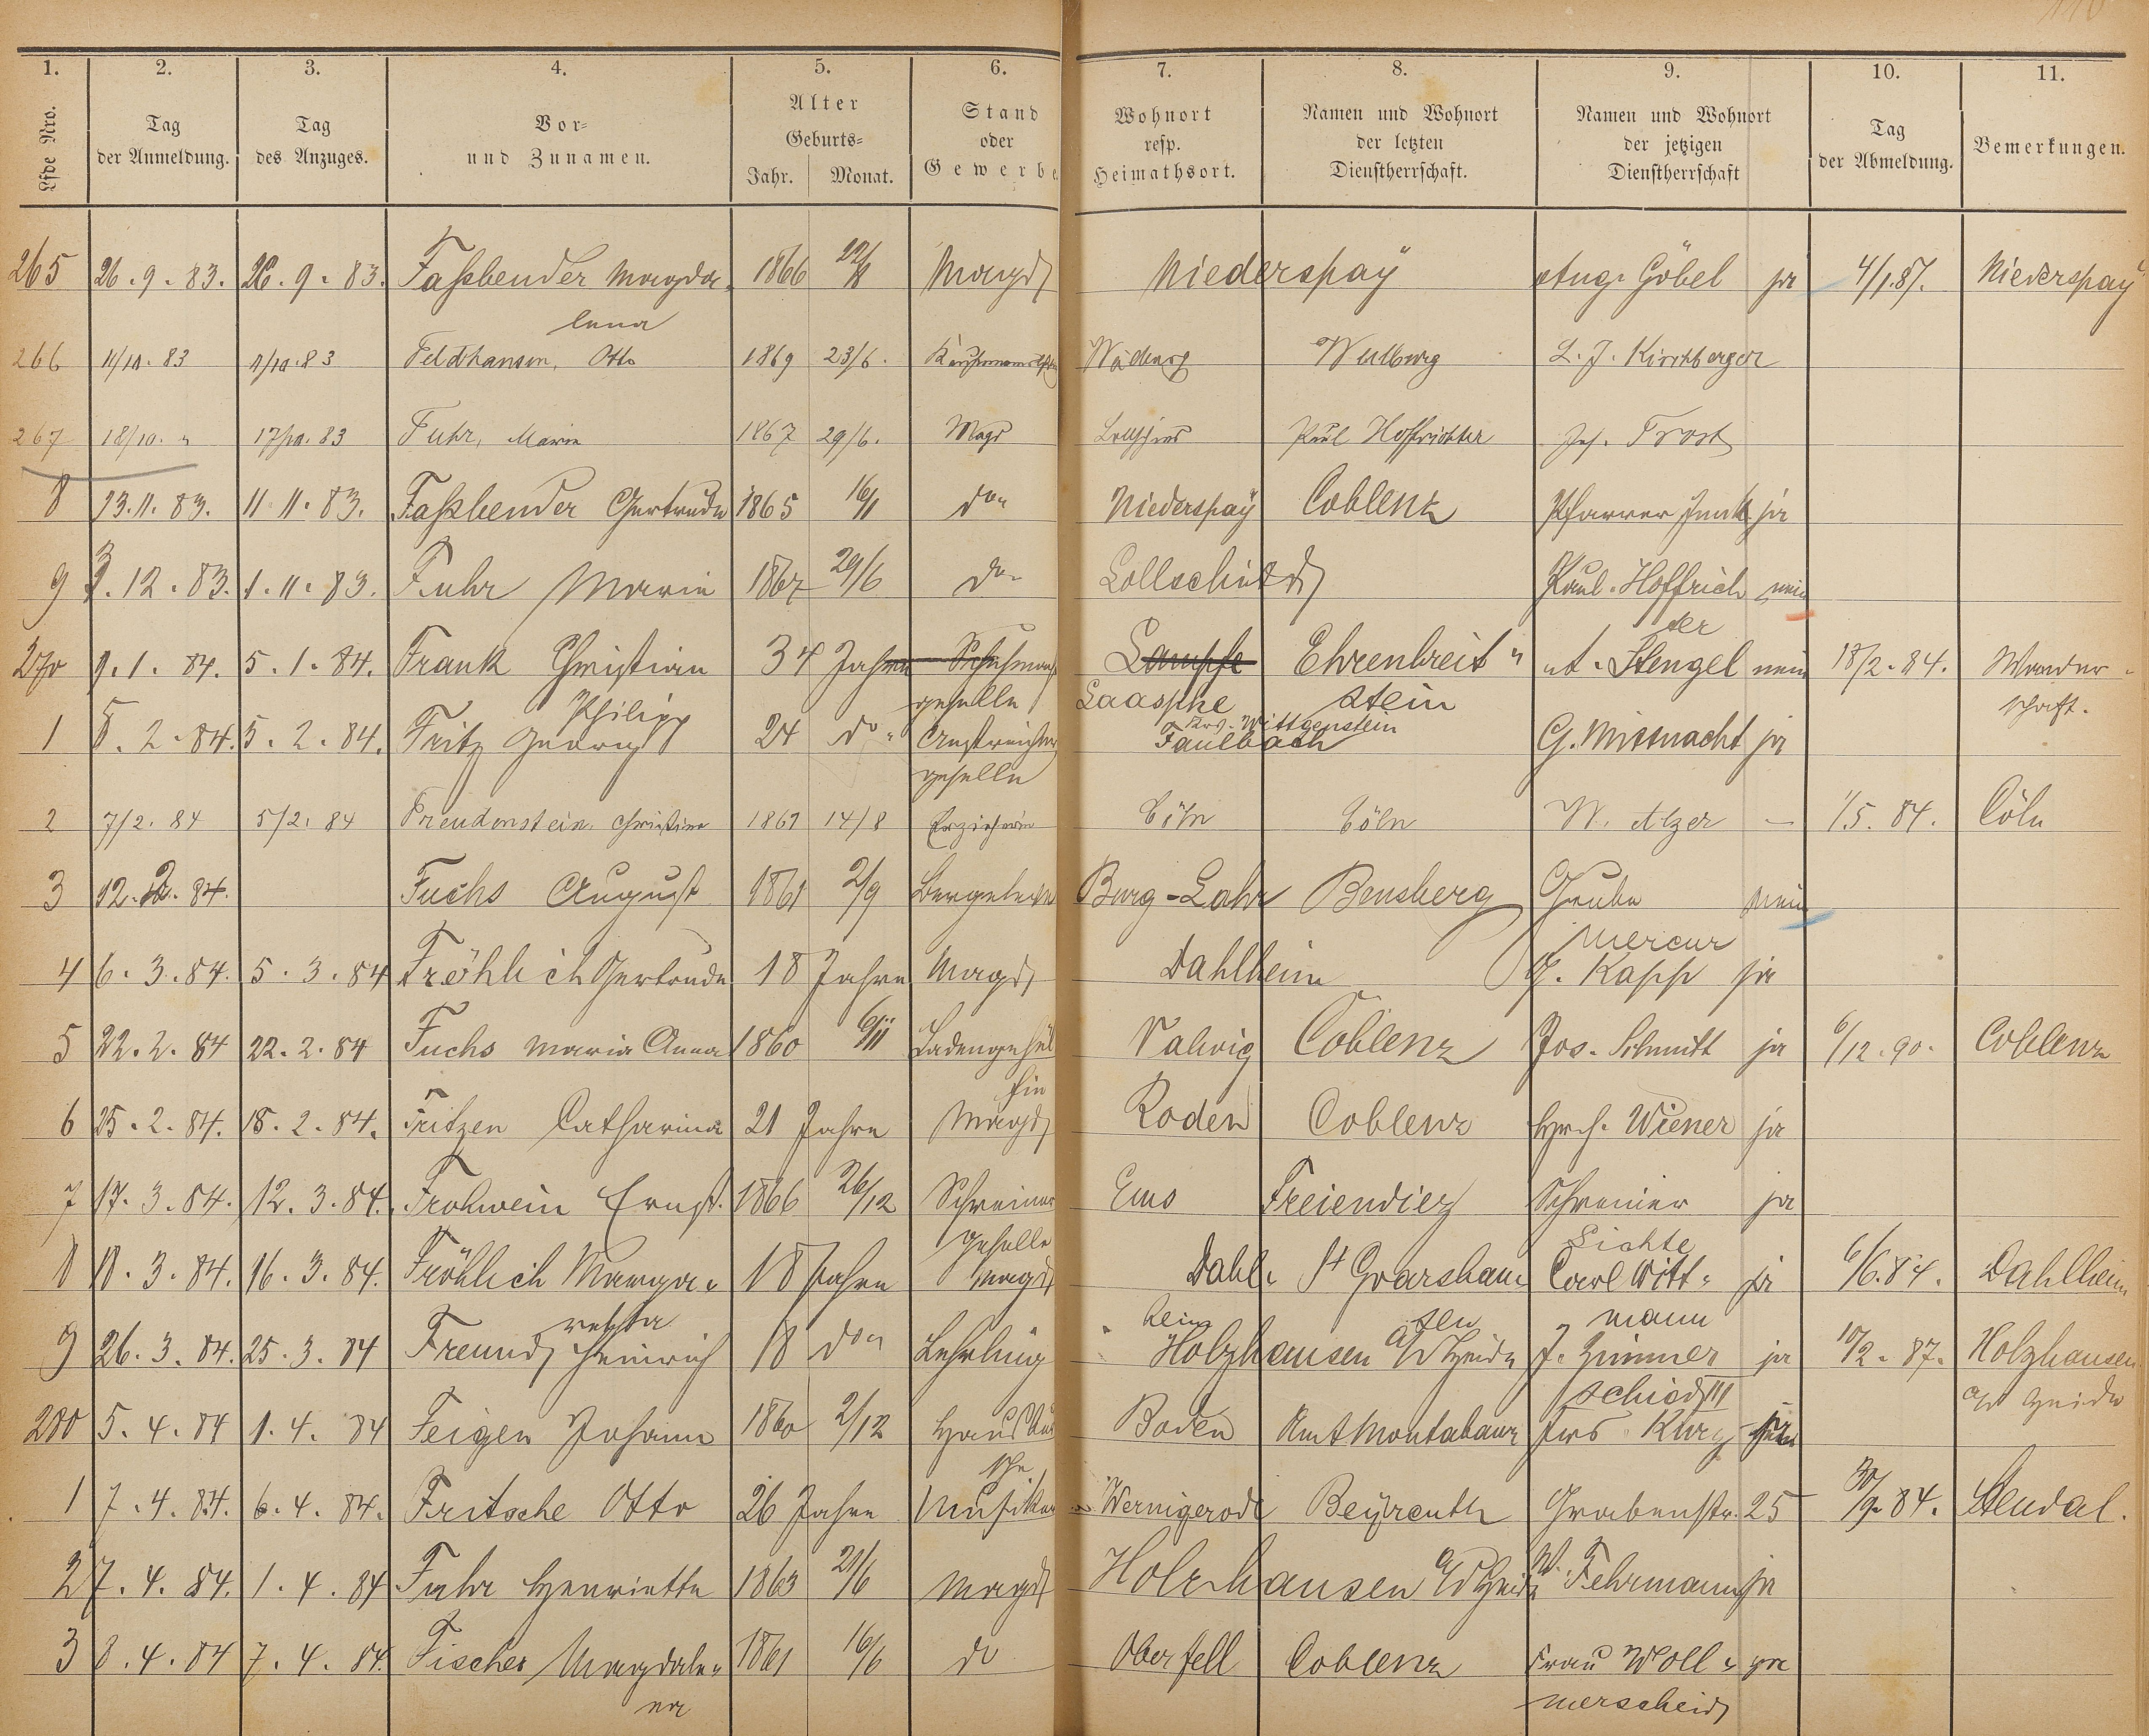 110
1. 2. 3. 4. 5. 6. 7. 8. 9. 10. 11.
Lfde Nro. Tag der Anmeldung. Tag des Anzuges. Vor- und Zunamen. Alter Geburts- Jahr. Monat. Stand oder Gewerbe. Wohnort resp. Heimathsort. Namen und Wohnort der letzten Dienstherrschaft. Namen und Wohnort der jetzigen Dienstherrschaft Tag der Abmeldung. Bemerkungen.
265 26.9.83. 26.9.83. Faßbender Magda- 1866 22/8 Magd Niederspaÿ Aug. Göbel ja 4/1.87. Niederspaÿ
lena
266 11/10.83 11/10.83 Feldhansen, Otto 1869 23/6. L. J. Kirchberger
267 18/10. " 17/10.83 Fuhr, Marie 1867 29/6. Magd Paul Hoffrichter Jos. Trost
8 13.11.83. 11.11.83. Faßbender Gertrude 1865 16/11 do " Niederspaÿ Coblenz Pfarrer ja
9 3.12.83. 1.11.83. Fuhr Marie 1867 29/6 do " Lollschied Paul Hoffrich nein
ter
270 9.1.84. 5.1.84. Frank Christian 34 Jahre Schuhmach Ehrenbreit " A. Stengel nein 18/2.84. Wander-
geselle Laasphe stein schaft.
Krs. Wittgenstein
Philipp
1 5.2.84. 5.2.84. Fritz Georg 24 do " Anstreicher Faulbach G. Missnacht ja
geselle
2 7/2.84 5/2.84 Freudenstein, Christine 1861 14/8 Erzieherin Cöln Cöln W. Alzer — 1/5.84. Cöln
3 12.2.84. Fuchs August 1861 2/9 Burg-Lahr Bensberg Grube nein
Mercur
4 6.3.84. 5.3.84 Fröhlich Gertrude 18 Jahre Magd Dahlheim G. Kapp ja
5 22.2.84 22.2.84 Fuchs Maria Anna 1860 6/11 Ladengehül Valwig Coblenz Jos. Schmitt ja 6/12.90. Coblenz
fin
6 25.2.84. 18.2.84. Fritzen Catharina 21 Jahre Magd Roden Coblenz Hrch. Wiener ja
7 17.3.84. 12.3.84. Frohwein Ernst. 1866 26/12 Schreiner Ems Freiendiez Schreiner ja
geselle Lichte
8 18.3.84. 16.3.84. Fröhlich Marga- 18 Jahre Magd Dahl- St Goarshau Carl Witt- ja 6/6.84. Dahlheim
retha heim sen mann
9 26.3.84. 25.3.84 Freund Heinrich 18 do " Lehrling Holzhausen a/d Heide J. Zimmer ja 10/2.87. Holzhausen
schied III a/d Heide
280 5.4.84 1.4.84 Feigen Johann 1860 2/12 Hausbur Boden Amt Montabaur Jos. Kurz
sche
1 7.4.84. 6.4.84. Fritsche Otto 26 Jahre Musiker Wernigerode Beÿreuth Grabenstr. 25 30/9.84. Stendal.
2 7.4.84. 1.4.84 Fuhr Henriette 1863 21/6 Magd Holzhausen a/d Heide W. Fehrmann ja
3 8.4.84 7.4.84. Fischer Magdale- 1861 16/6 do Oberfell Coblenz Frau Woll-
na merscheid